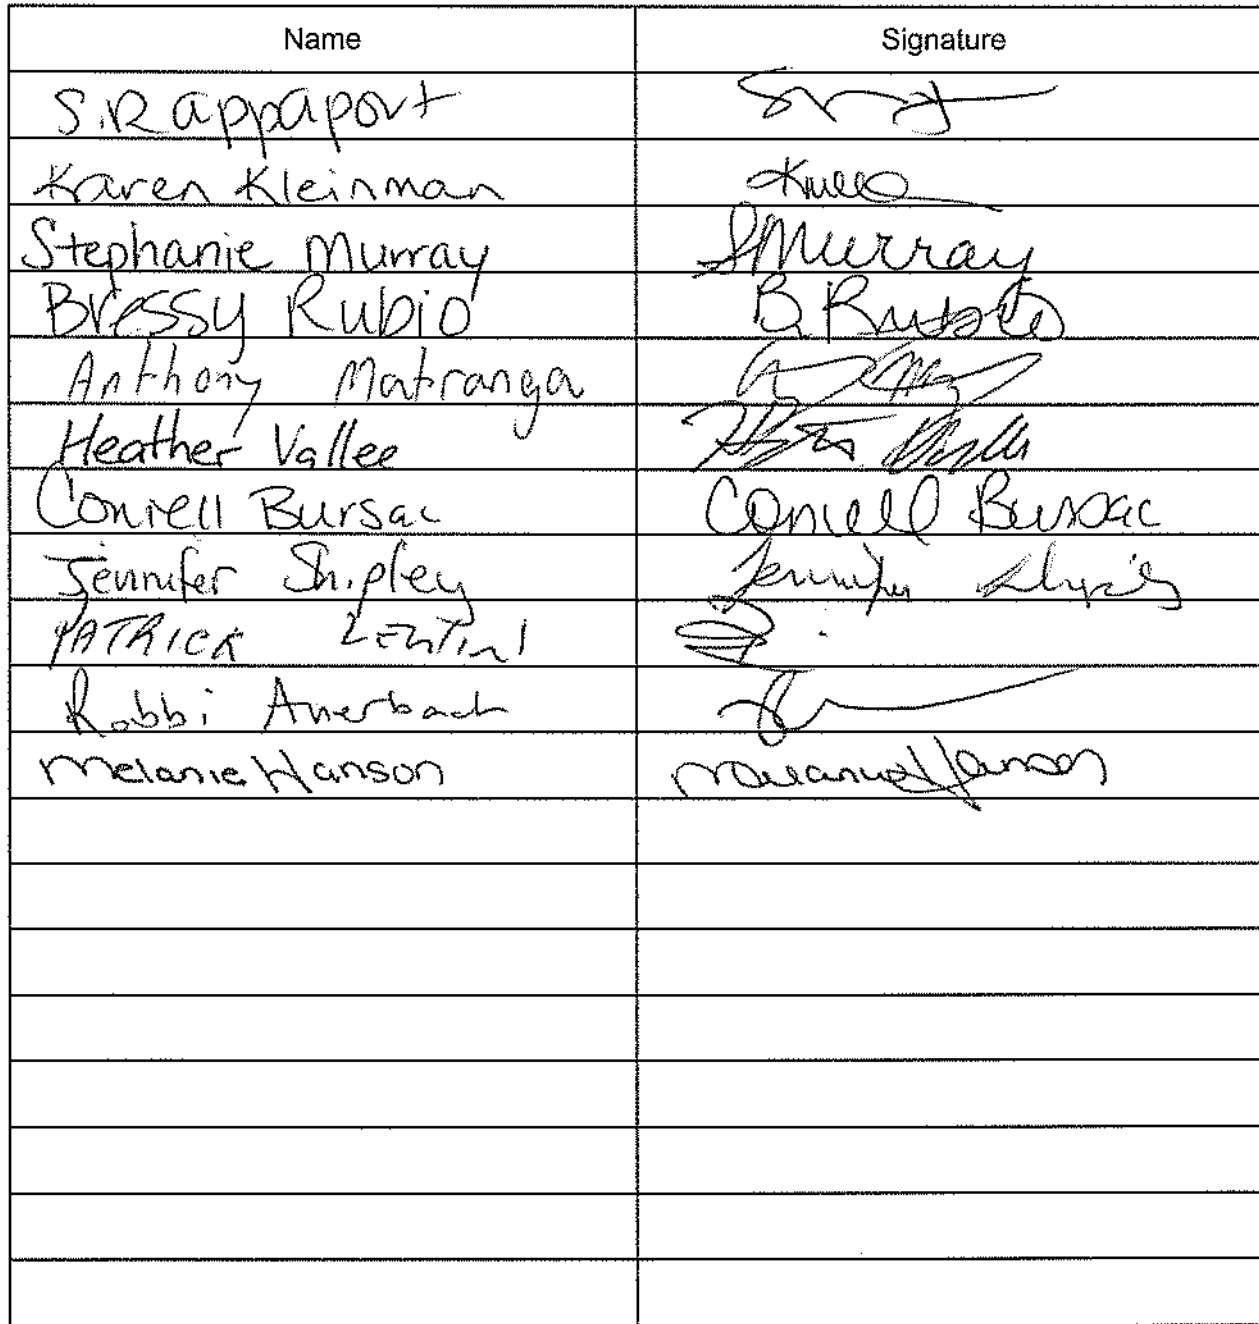 Name Signature
S. Rappaport
Karen Kleinman
Stephanie Murray SMurray
Bressy Rubio B. Rubio
Anthony Matranga
Heather Vallee
Conrell Bursac Conrell Bursac
Jennifer Shipley Jennifer Shipley
PATRICK LENTINI
Robbi Auerbach
Melanie Hanson Melanie Hanson